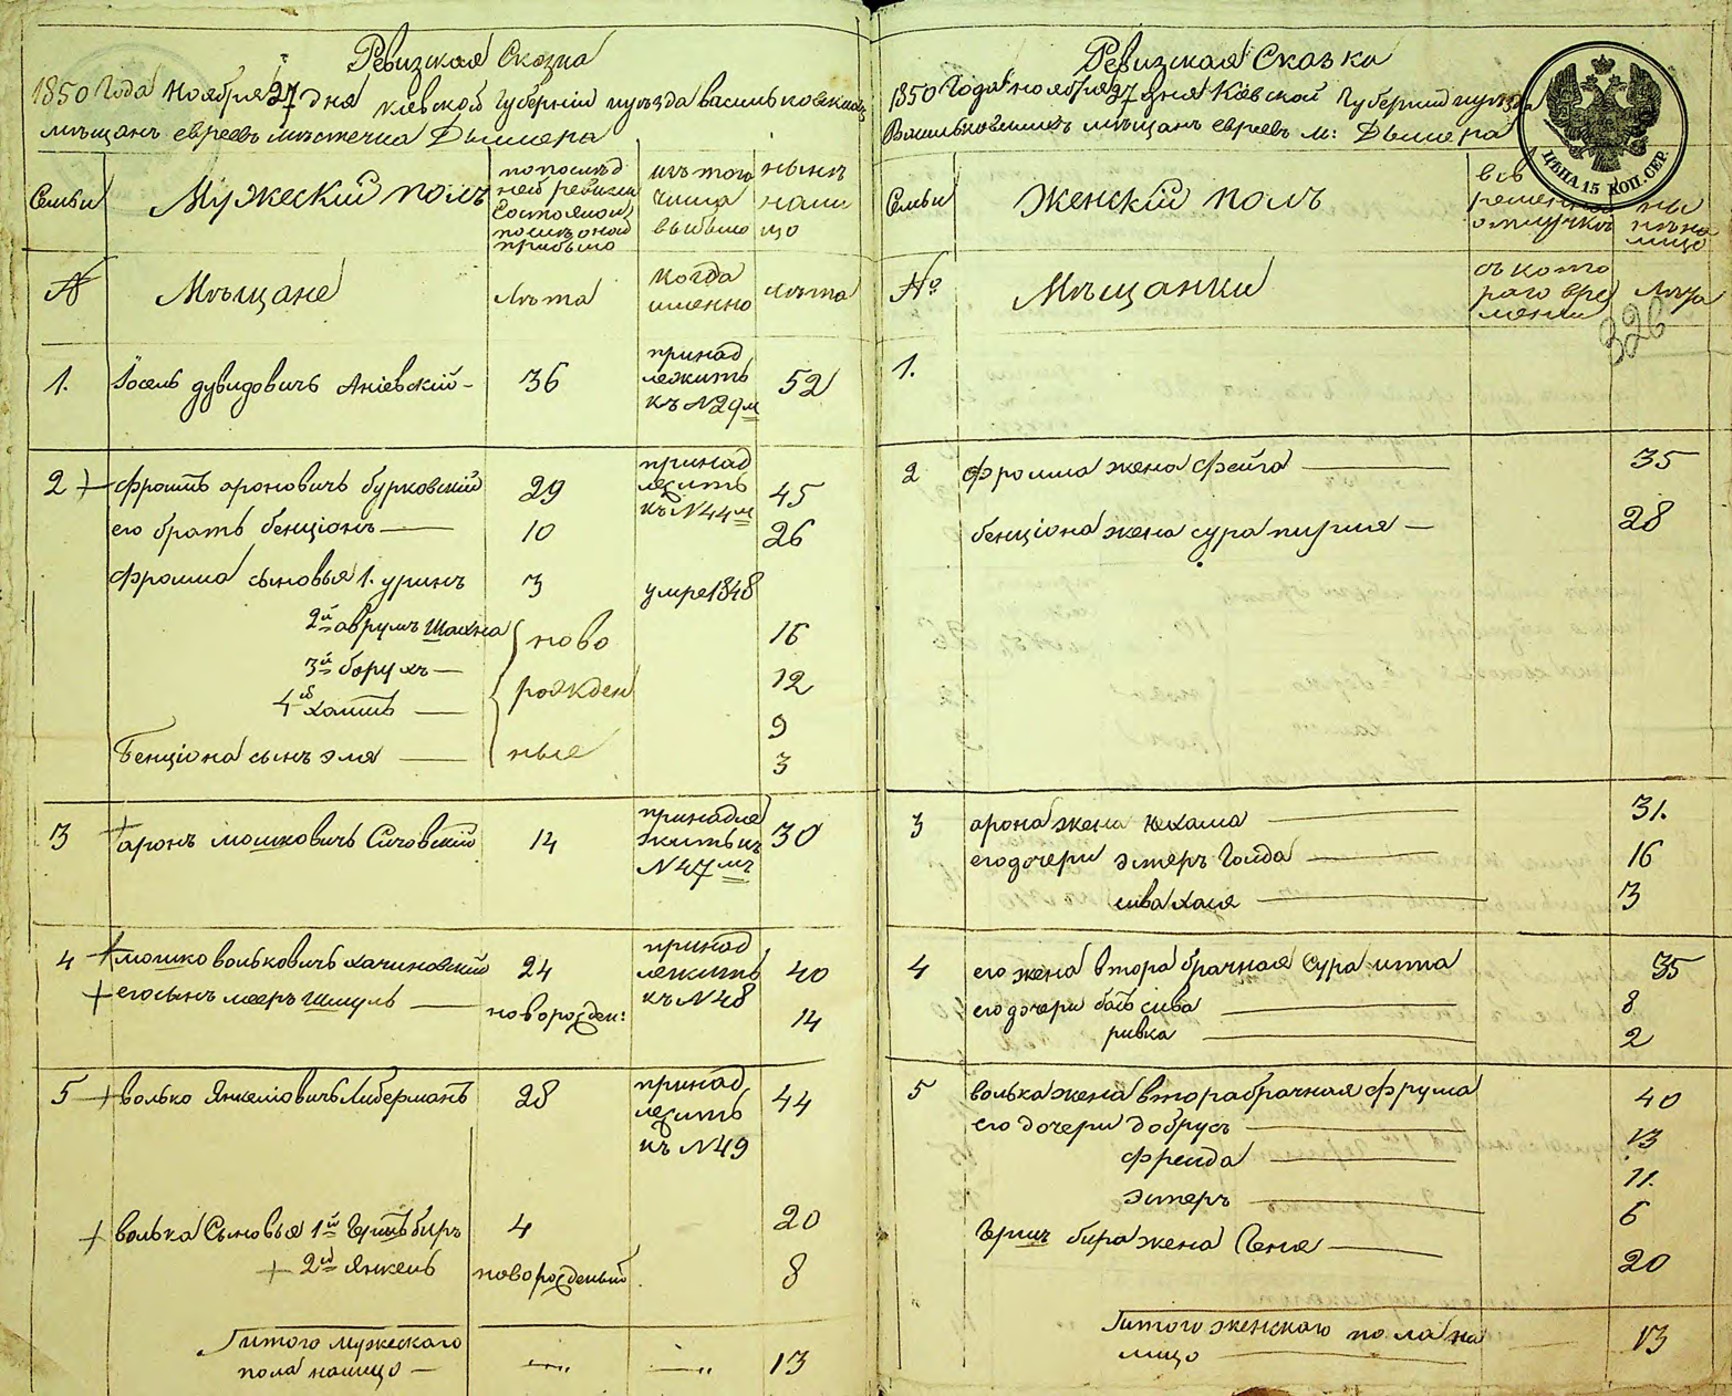 Ревизская Сказка
1850 Года Ноября 27 дня Киевской Губернии уъезда васильковскихъ
мъщанъ евреевъ мъстечка Дымера
Семьи
Мужескій полъ
по послъд
ней ревизіи
состояло и
послъ оной
прибыло
изъ того
числа
выбыло
нынъ
на ли
цо
№
Мъщане
лъта
когда
именно
лъта
1. Іосель дувидовичъ Аніевскій - 36
принад
лежитъ
къ №29м
52
2 + фроимъ ароновичъ бурковскій 29
принад
лежитъ
къ №44м
45
его братъ бенціонъ — 10 26
фроима сыновья 1. уринъ 3 умре 1848
2й аврумъ Шахна ново 16
3й борухъ — рожден 12
4й хаимъ — 9
Бенціона сынъ эля — ные 3
3 + аронъ мошковичъ Сиговскій 14
принадле
житъ къ
№47мъ
30
4 + мошко вольковичъ хачиновскій 24
принад
лежитъ
къ №48
40
+ его сынъ мееръ Шмуль — новорожден: 14
5 + волько Янкеліовичъ Либерманъ 28
принад
лежитъ
къ №49
44
+ волька Сыновья 1й Гершъ биръ 4 20
+ 2й Янкель новорожденый 8
Итого мужескаго
пола налицо — 13
Ревизская Сказка
1850 Года ноября 27 дня Киевской Губерніи уъзда
Васильковскихъ мъщанъ евреевъ м: Дымера
ЦѢНА 15 КОП. СЕР.
Семьи
Женскій полъ
во вре
менной
отлучкъ
ны
нъ на
лицо
№
Мъщанки
съ кото
раго вре
мени
лъта
326
1.
2 фроима жена фейга — 35
бенціона жена сура пирля — 28
3 арона жена Нехама — 31.
его дочери эстеръ Голда — 16
сива хая — 3
4 его жена втора брачная Сура итта 35
его дочери бать сива — 8
ривка — 2
5 волька жена втора брачная фрума 40
его дочери добрусъ — 13
фрейда — 11.
эстеръ — 6
Гершъ бира жена Геня — 20
Итого женскаго пола на
лицо — 13